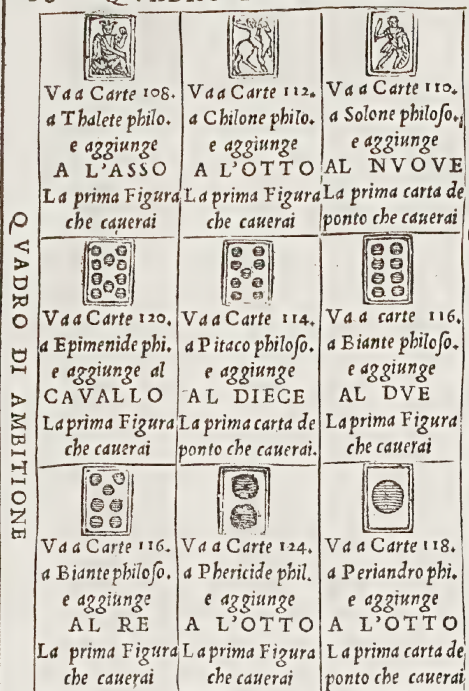 QVADRO DI AMBITIONE
Va a Carte 108.
a Thalete philo.
e aggiunge
A L'ASSO
La prima Figura
che cauerai
Va a Carte 112.
a Chilone philo.
e aggiunge
A L'OTTO
La prima Figura
che cauerai
Va a Carte 110.
a Solone philoso.
e aggiunge
AL NVOVE
La prima carta de
ponto che cauerai
Va a Carte 120.
a Epimenide phi.
e aggiunge al
CAVALLO
La prima Figura
che cauerai
Va a Carte 114.
a Pitaco philoso.
e aggiunge
AL DIECE
La prima carta de
ponto che cauerai.
Va a carte 116.
a Biante philoso.
e aggiunge
AL DVE
La prima Figura
che cauerai
Va a Carte 116.
a Biante philoso.
e aggiunge
AL RE
La prima Figura
che cauerai
Va a Carte 124.
a Phericide phil.
e aggiunge
A L'OTTO
La prima Figura
che cauerai
Va a Carte 118.
a Periandro phi.
e aggiunge
A L'OTTO
La prima carta de
ponto che cauerai